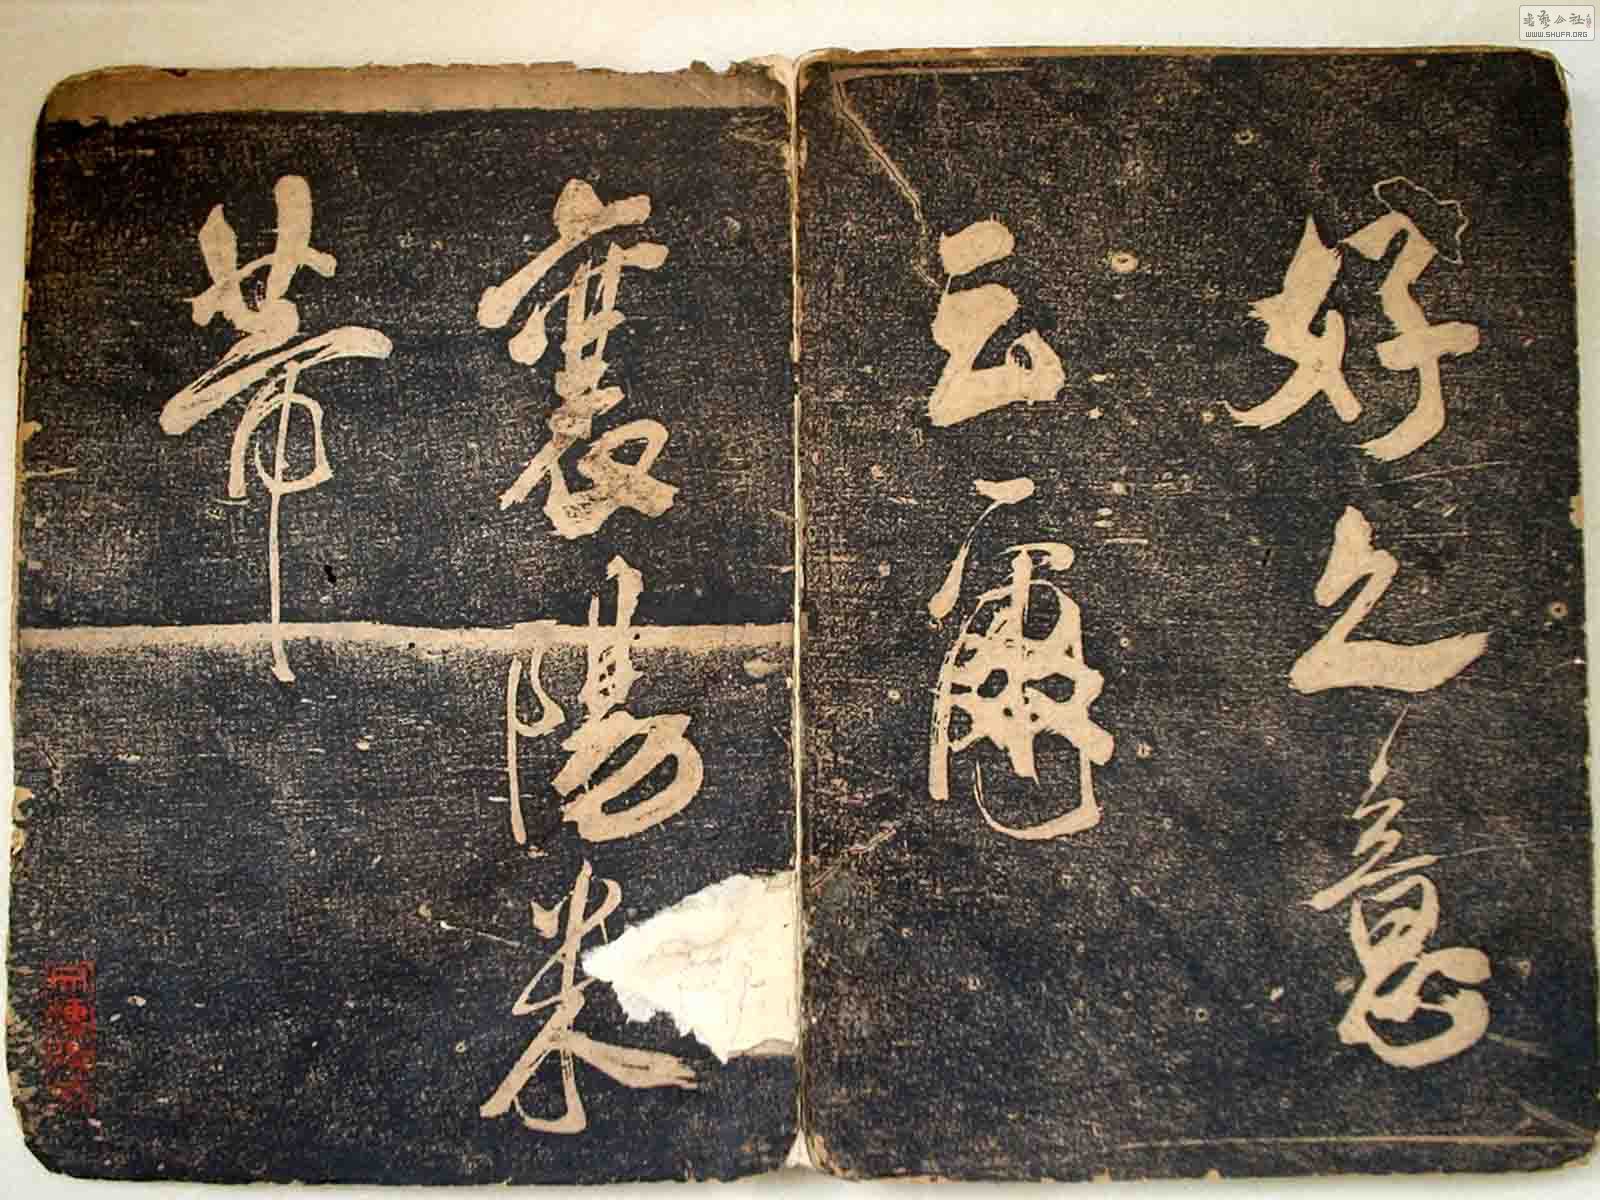 好之意
云爾
襄陽米
芾
書藝公社
WWW.SHUFA.ORG